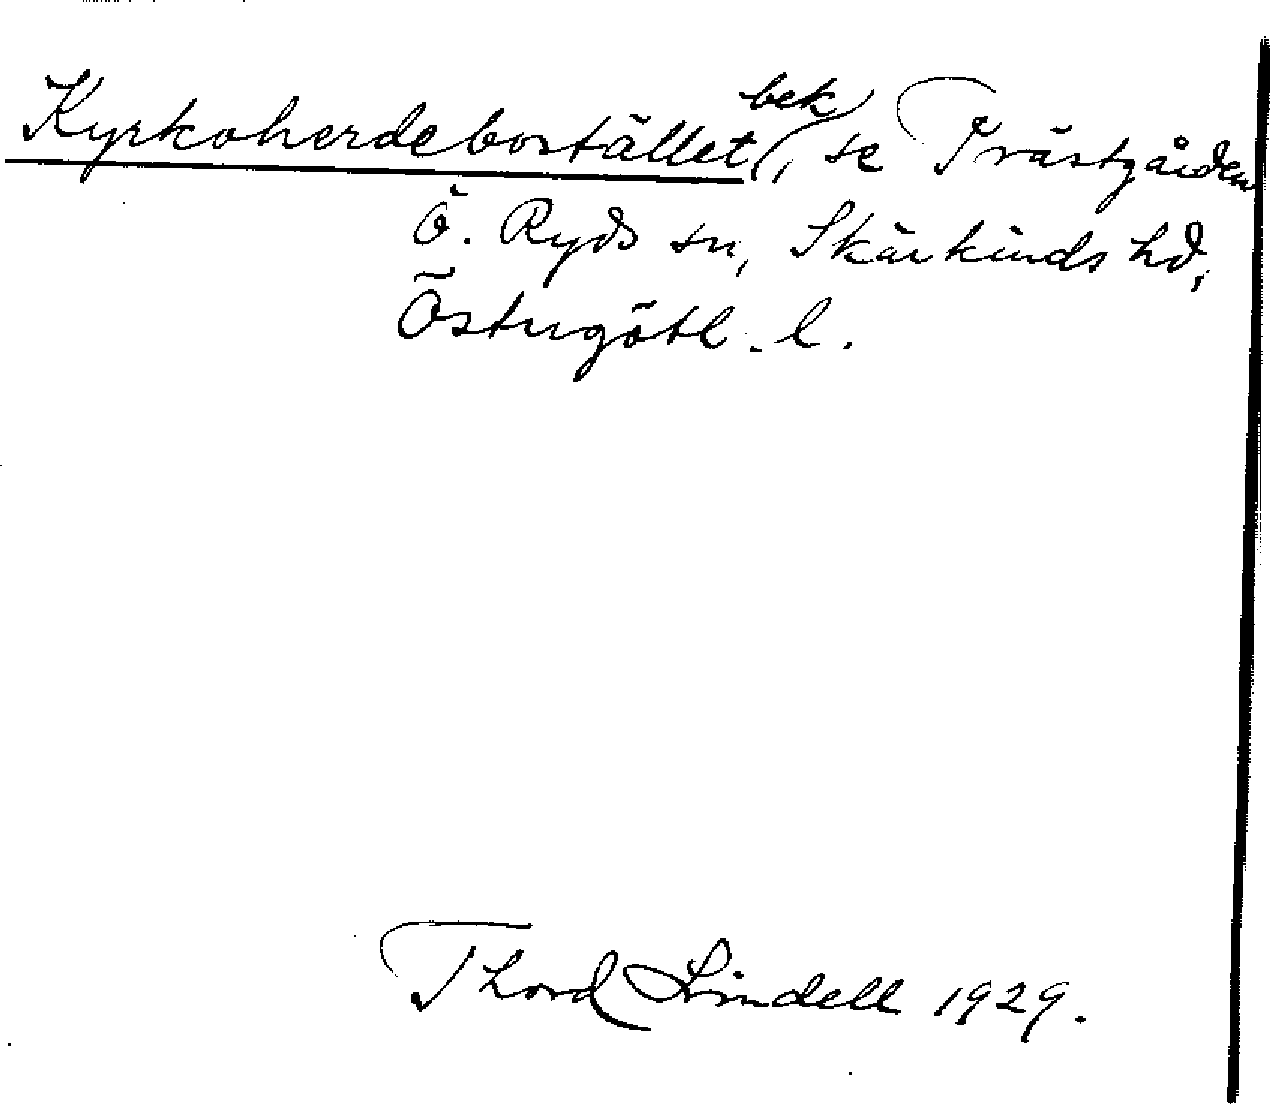 Kyrkoherdebostället (bek), se Prästgården
Ö. Ryds sn, Skärkinds hd,
Östergötl. l.
Thord Lindell 1929.